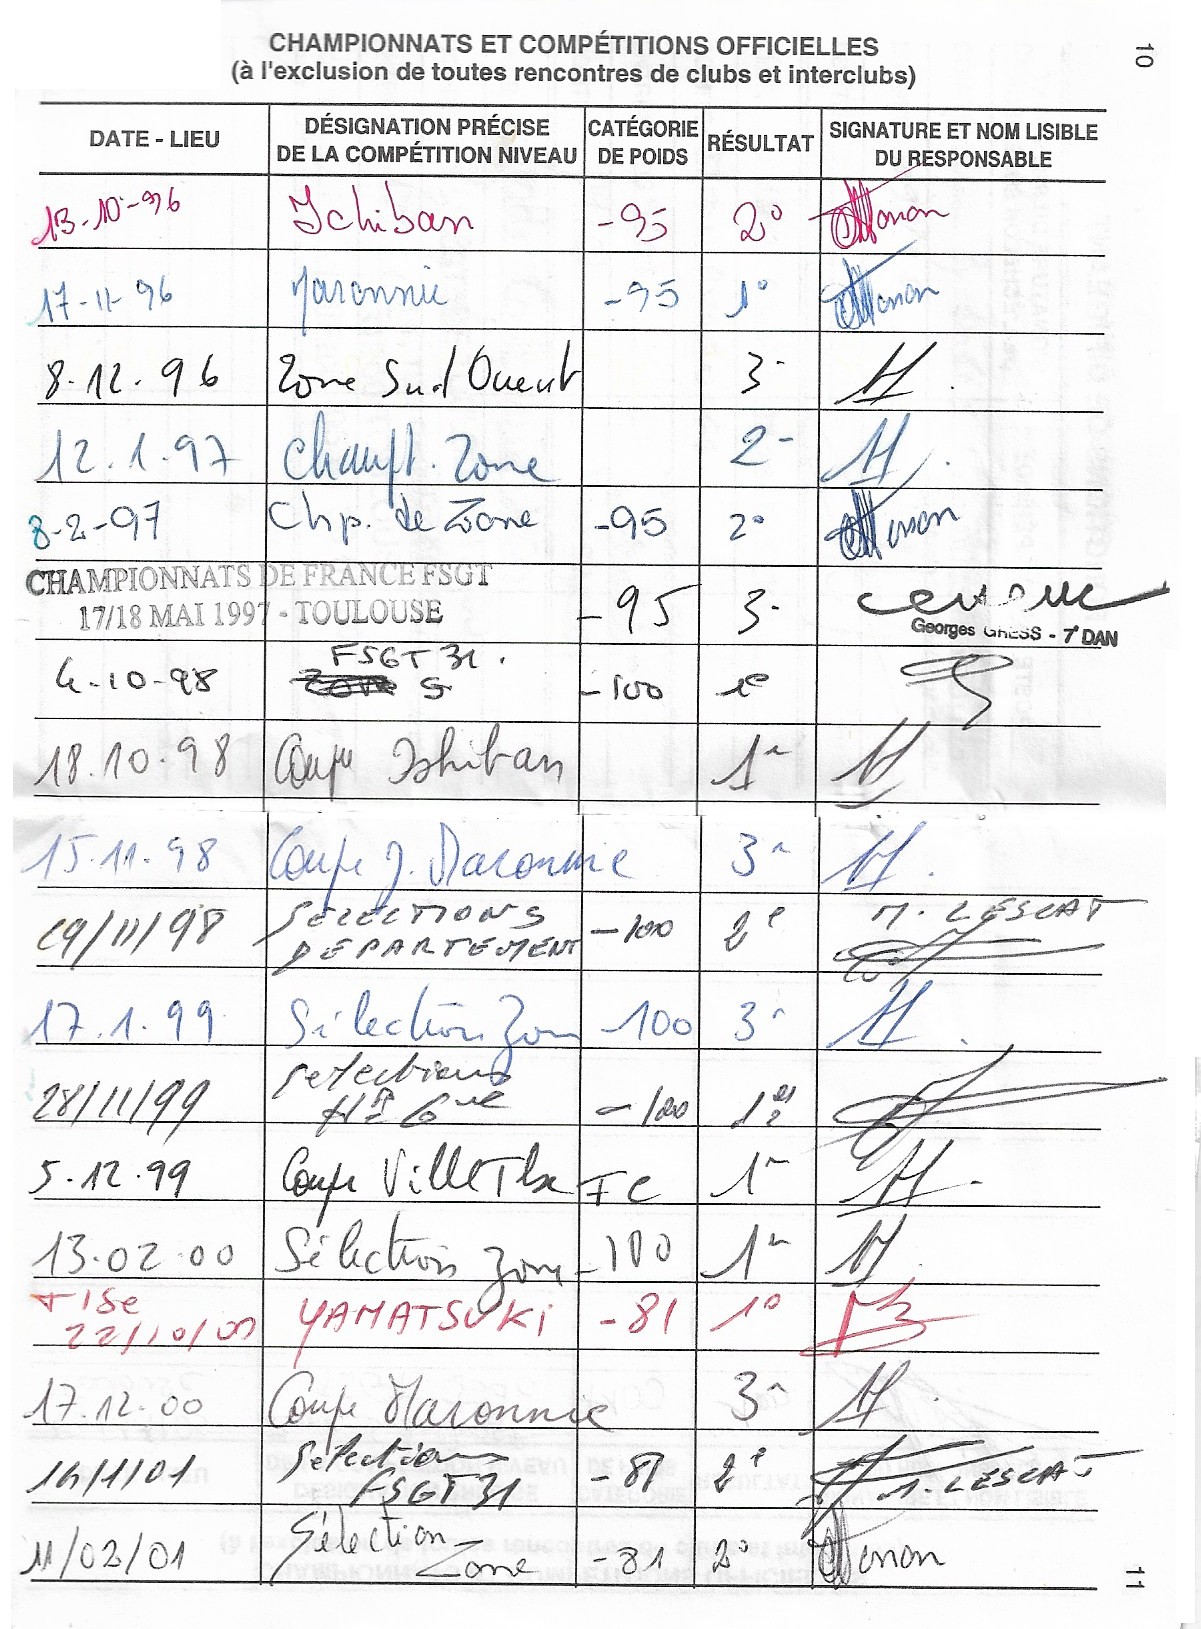 CHAMPIONNATS ET COMPÉTITIONS OFFICIELLES
(à l'exclusion de toutes rencontres de clubs et interclubs)
10
DATE - LIEU DÉSIGNATION PRÉCISE DE LA COMPÉTITION NIVEAU CATÉGORIE DE POIDS RÉSULTAT SIGNATURE ET NOM LISIBLE DU RESPONSABLE
13-10-96 Ichiban -95 2°
17-11-96 Maronnie -95 1°
8.12.96 Zone Sud Ouest 3
12.1.97 Champt. Zone 2
8-2-97 Chp. de Zone -95 2°
CHAMPIONNATS DE FRANCE FSGT
17/18 MAI 1997 - TOULOUSE -95 3
Georges GRESS - 7° DAN
4.10-98 FSGT 31. -100 1e
18.10.98 Coupe Ishiban 1
15.11.98 Coupe J. Maronnie 3
29/11/98 SELECTIONS DEPARTEMENT -100 2e M. LESCAT
17.1.99 Sélection Zone -100 3
28/11/99 Selections -100 1er
5.12.99 Coupe Ville Tlse TC 1
13.02.00 Sélection Zone -100 1
Tlse
22/10/00 YAMATSUKI -81 1°
17.12.00 Coupe Maronnie 3
14/1/01 Sélection FSGT 31 -81 2e M. LESCAT
11/02/01 Sélection Zone -81 2°
11